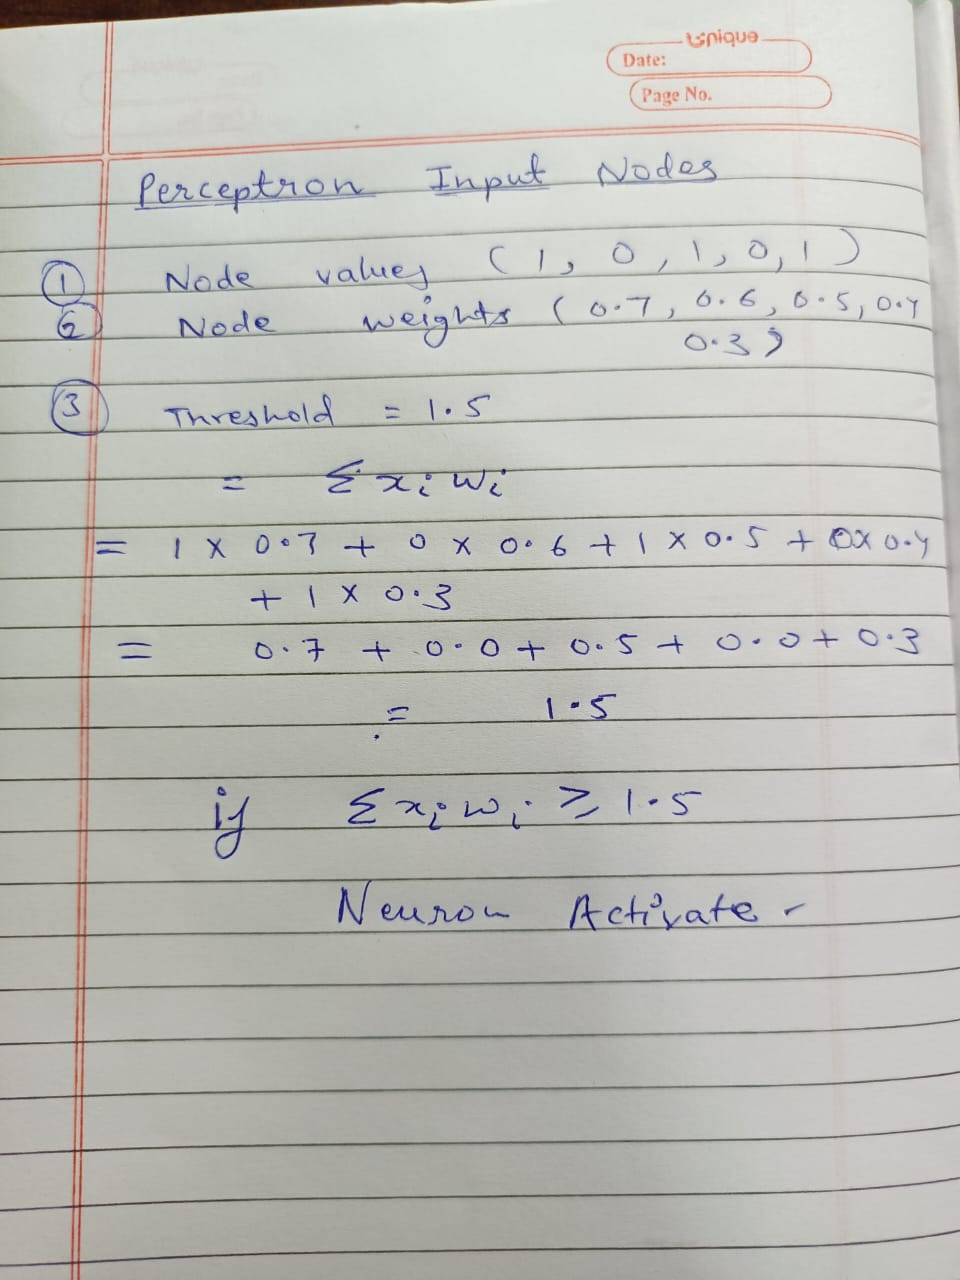 Unique
Date:
Page No.
Perceptron Input Nodes
① Node values (1, 0, 1, 0, 1)
② Node weights (0.7, 0.6, 0.5, 0.4
0.3)
③ Threshold = 1.5
= Σ xi wi
= 1 × 0.7 + 0 × 0.6 + 1 × 0.5 + 0 × 0.4
+ 1 × 0.3
= 0.7 + 0.0 + 0.5 + 0.0 + 0.3
= 1.5
if Σ xi wi ≥ 1.5
Neuron Activate